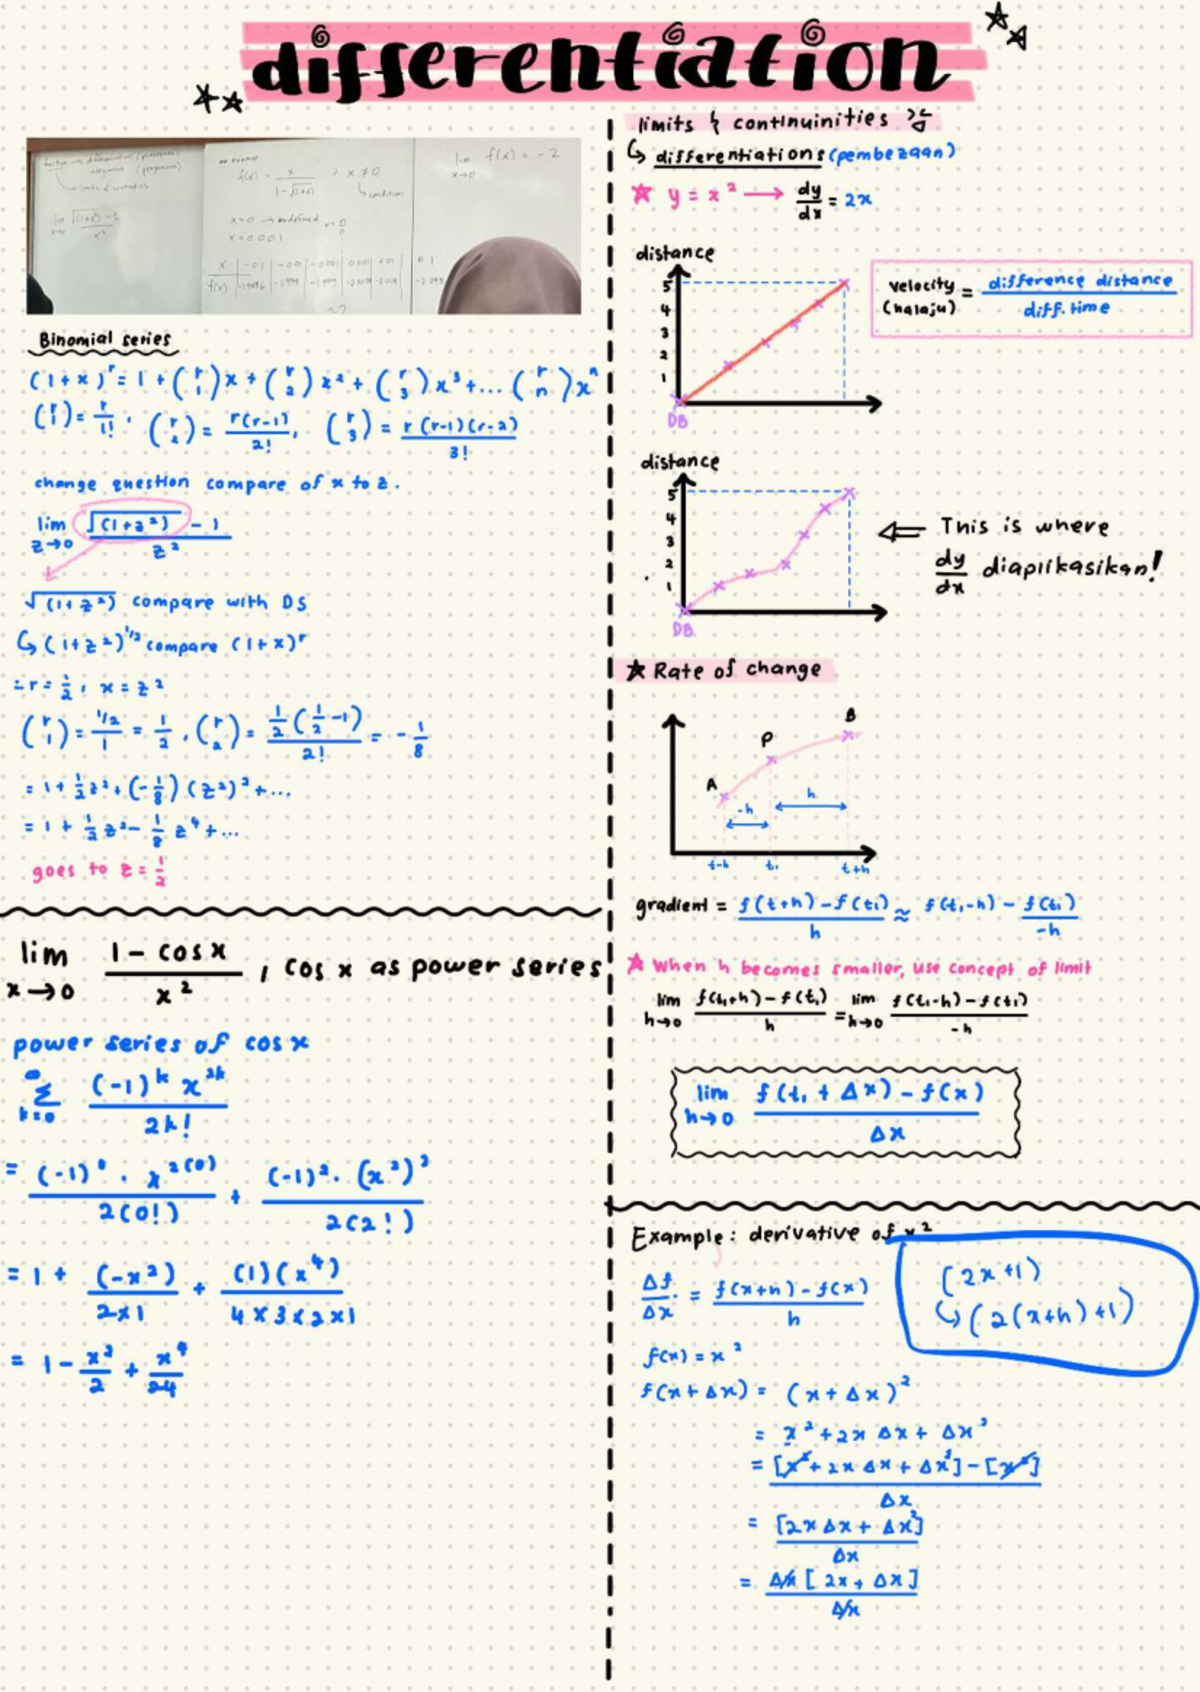 differentiation
an example
f(x) = x / 1-√(1+x) , x ≠ 0
condition
x=0 → undefined
x=0.001
lim x→0 f(x) = -2
lim x→0 √(1+x²) - 1 / x²
Binomial series
(1+x)^r = 1 + (r 1)x + (r 2)x² + (r 3)x³ + ... (r n)x^n
(r 1) = r/1! , (r 2) = r(r-1)/2! , (r 3) = r(r-1)(r-2)/3!
change question compare of x to z.
lim z→0 √(1+z²) - 1 / z²
√(1+z²) compare with DS
↳ (1+z²)^1/2 compare (1+x)^r
∴ r = 1/2 , x = z²
(r 1) = 1/2 / 1 = 1/2 , (r 2) = 1/2 (1/2 -1) / 2! = - 1/8
= 1 + 1/2 z² + (-1/8) (z²)² + ...
= 1 + 1/2 z² - 1/8 z⁴ + ...
goes to z = 1/2
lim x→0 1 - cos x / x² , cos x as power series
power series of cos x
∞ Σ k=0 (-1)^k x^2k / 2k!
= (-1)⁰ · x^2(0) / 2(0!) + (-1)² · (x²)² / 2(2!)
= 1 + (-x²) / 2×1 + (1)(x⁴) / 4×3×2×1
= 1 - x²/2 + x⁴/24
limits & continuinities
↳ differentiations (pembezaan)
★ y = x² → dy/dx = 2x
distance
5
4
3
2
1
DB
velocity (halaju) = difference distance / diff. time
distance
5
4
3
2
1
DB
⇐ This is where
dy/dx diaplikasikan!
★ Rate of change
B
P
A
h
-h
t-h t₁ t+h
gradient = f(t+h) - f(t₁) / h ≈ f(t₁-h) - f(t₁) / -h
★ When h becomes smaller, use concept of limit
lim h→0 f(t₁+h) - f(t₁) / h = lim h→0 f(t₁-h) - f(t₁) / -h
lim h→0 f(t₁ + Δx) - f(x) / Δx
Example: derivative of x²
Δf/Δx = f(x+h) - f(x) / h
(2x+1)
↳ (2(x+h)+1)
f(x) = x²
f(x+Δx) = (x+Δx)²
= x² + 2x Δx + Δx²
= [x² + 2x Δx + Δx²] - [x²] / Δx
= [2x Δx + Δx²] / Δx
= Δx [2x + Δx] / Δx